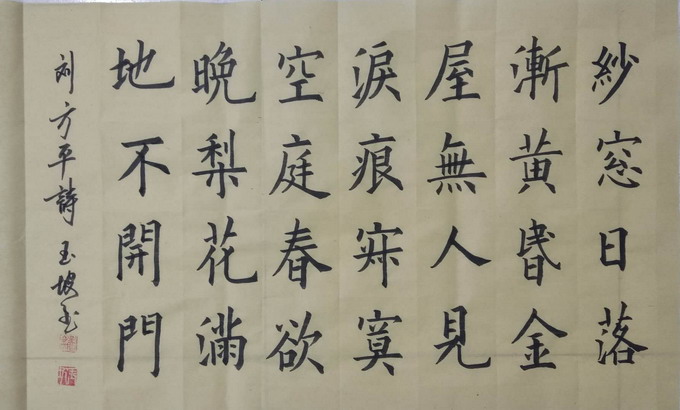 紗窓日落
漸黄昬金
屋無人見
淚痕寂寞
空庭春欲
晚梨花滿
地不開門
刘方平詩 玉坡书